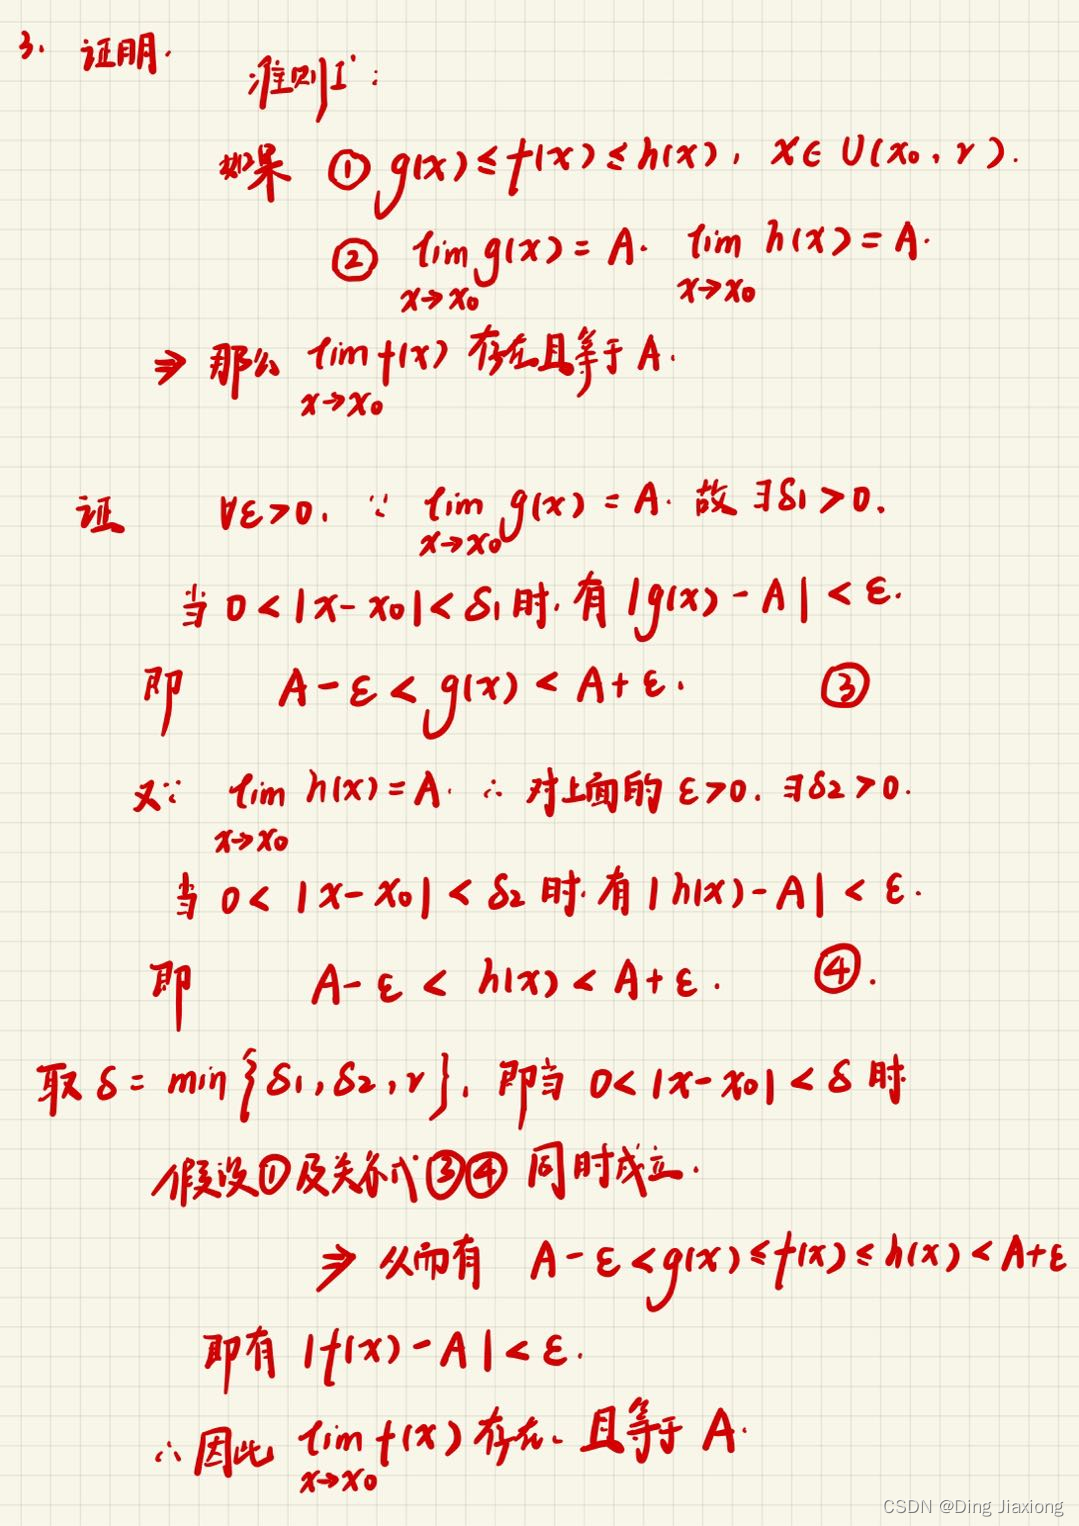 3. 证明.
准则I':
如果 ① g(x)≤f(x)≤h(x), x∈U(x₀,r).
② lim g(x)=A. lim h(x)=A.
x→x₀ x→x₀
⇒ 那么 lim f(x) 存在且等于A.
x→x₀
证 ∀ε>0. ∵ lim g(x)=A. 故∃δ₁>0.
x→x₀
当 0<|x-x₀|<δ₁时.有|g(x)-A|<ε.
即 A-ε<g(x)<A+ε. ③
又∵ lim h(x)=A. ∴ 对上面的 ε>0. ∃δ₂>0.
x→x₀
当 0<|x-x₀|<δ₂时.有|h(x)-A|<ε.
即 A-ε<h(x)<A+ε. ④.
取δ=min{δ₁,δ₂,r}, 即当 0<|x-x₀|<δ时
假设①及关系式③④同时成立.
⇒ 从而有 A-ε<g(x)≤f(x)≤h(x)<A+ε
即有 |f(x)-A|<ε.
∴因此 lim f(x)存在、且等于A.
x→x₀
CSDN @Ding Jiaxiong